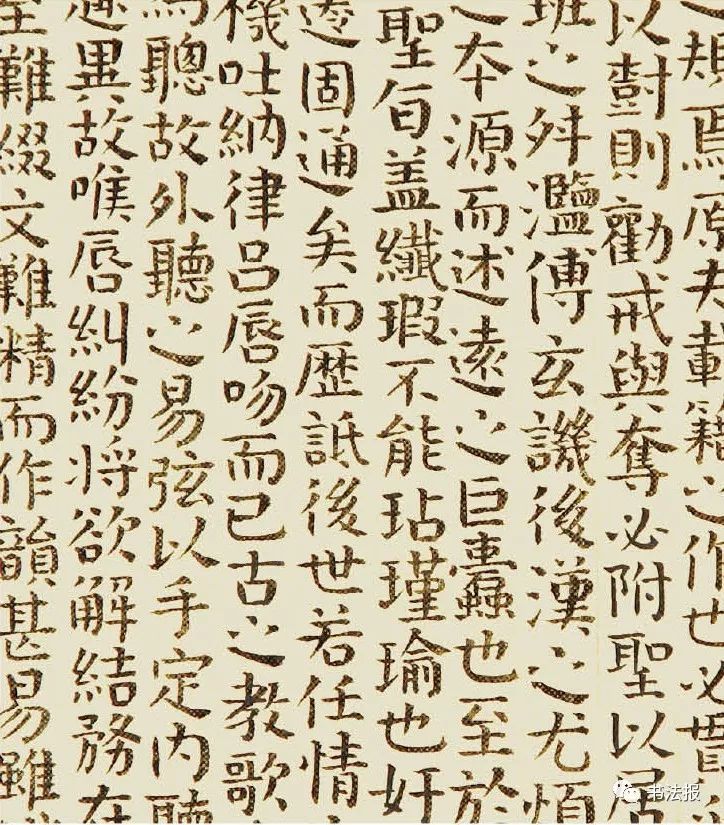 之規焉原夫載籍之作也必貫
以尌則勸戒與奪必附聖以居
班之舛濫傅玄譏後漢之尤煩
之夲源而述遠之巨蠹也至於
聖旨盖纖瑕不能玷瑾瑜也奸
遼固通矣而歷詆後世若任情
機吐納律呂唇吻而已古之教歌
為聰故外聽之易弦以手定內聽
趣異故喉唇糾紛将欲解結務在
至難綴文難精而作韻甚易雖
书法报